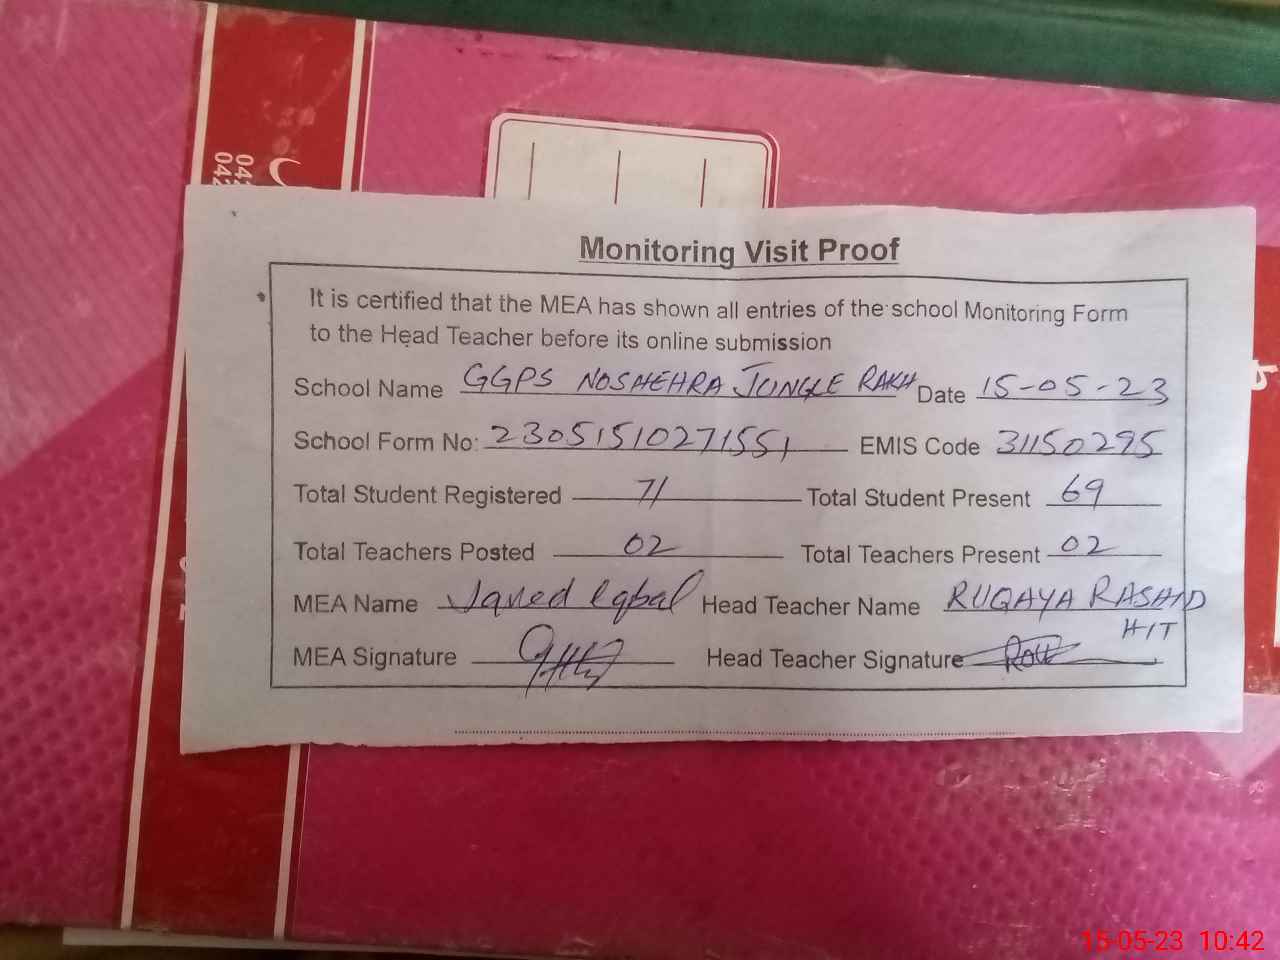 Monitoring Visit Proof
It is certified that the MEA has shown all entries of the school Monitoring Form
to the Head Teacher before its online submission
School Name GGPS NOSHEHRA JUNGLE RAKH Date 15-05-23
School Form No: 23051510271551 EMIS Code 31150295
Total Student Registered 71 Total Student Present 69
Total Teachers Posted 02 Total Teachers Present 02
MEA Name Javed Iqbal Head Teacher Name RUQAYA RASHID
H/T
MEA Signature Head Teacher Signature
15-05-23 10:42